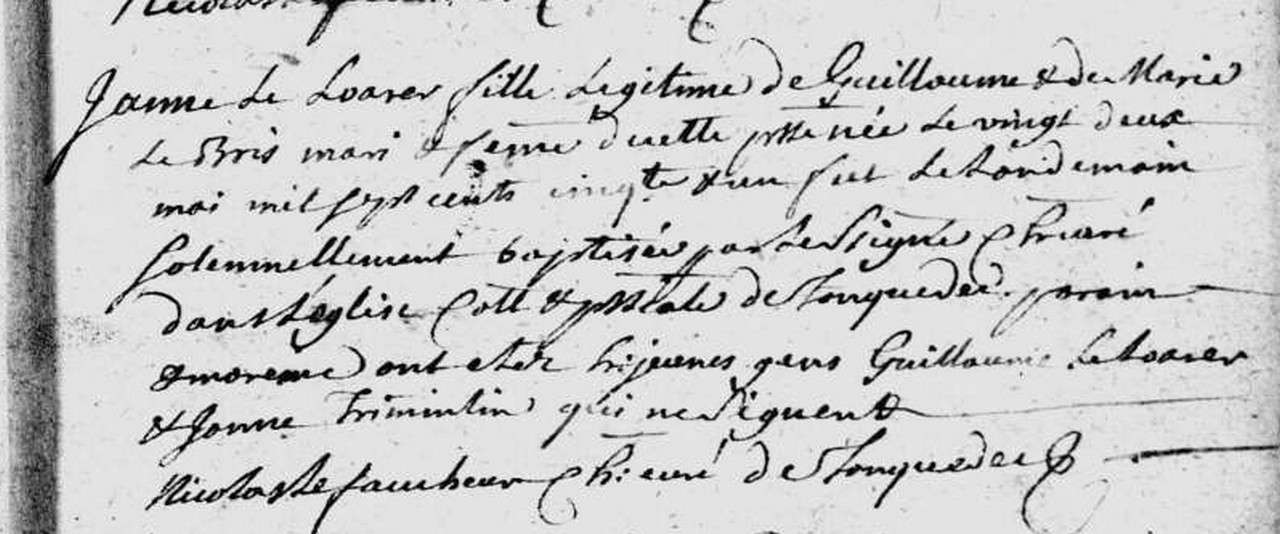 Nicolas Le faucheur
Janne Le Loarer fille Legitime de Guillaume & de Marie
Le Bris mari & feme de cette psse née Le vingt deux
mai mil sept cents cinqte & un fut Le Landemain
Solemnellement baptisée par Le Signé Chr: curé
dans L'église Coll & pssiale de Tonquedec. parain
& maraine ont eté Les jeunes gens Guillaume Le Loarer
& Janne Trimintin qui ne Signent
Nicolas Le faucheur Chr: curé de Tonquedec